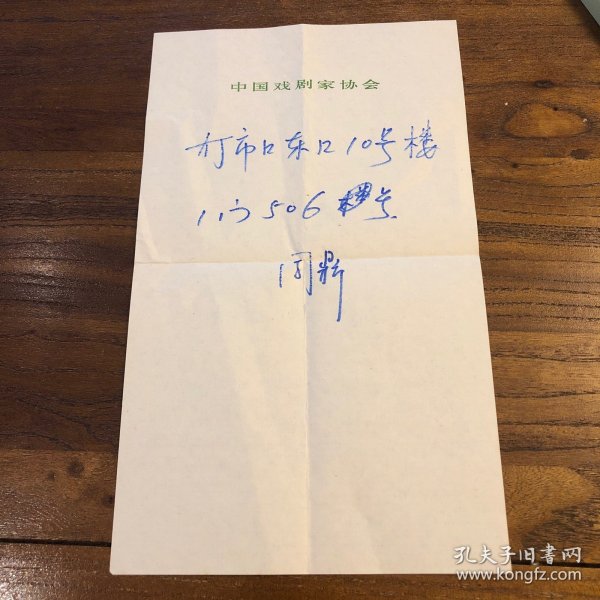 中国戏剧家协会
灯市口东口10号楼
1门506号
周鼎
孔夫子旧书网
www.kongfz.com